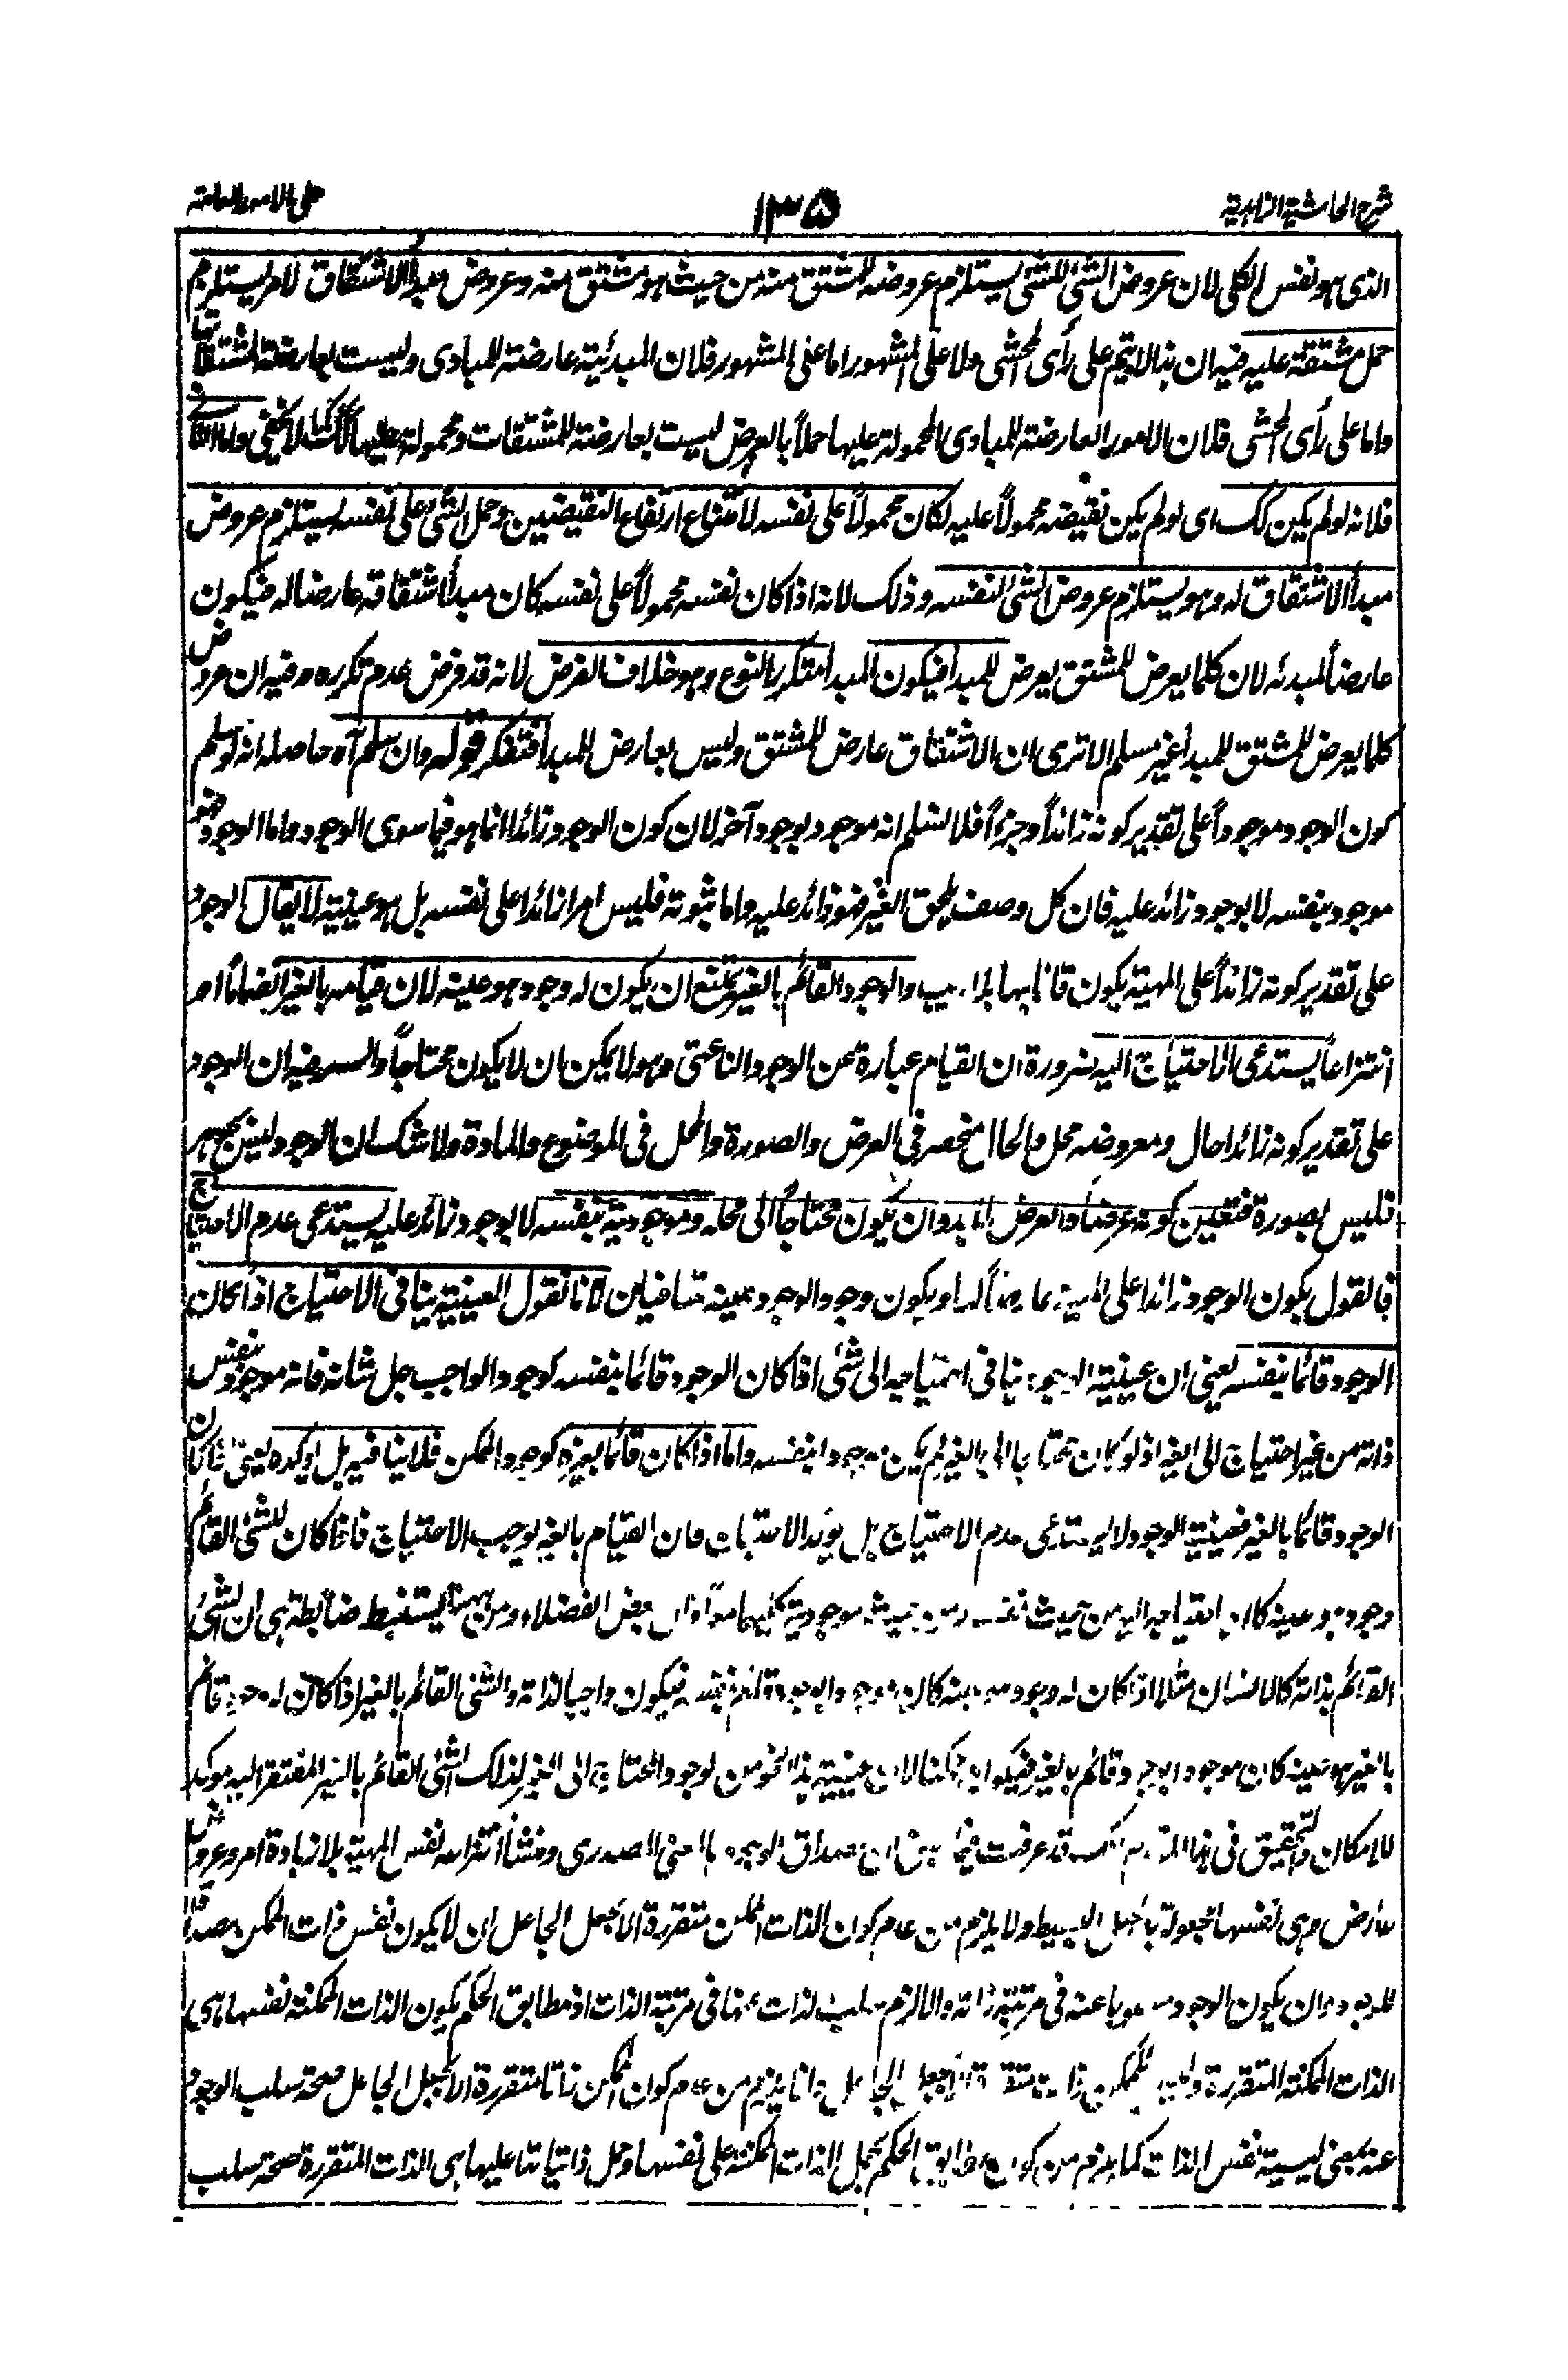 شرح الحاشية الزاهدية
١٣٥
على الامور العامة
الذى هو نفس الكلى لان عروض الشئ للشئ يستلزم عروضه للمشتق منه من حيث هو مشتق منه وعروض مبدأ الاشتقاق لامر يستلزم
حمل مشتقه عليه فيه ان هذا لا يتم على رأى المحشى ولا على المشهور اما على المشهور فلان المبدئية عارضة للمبادى وليست بعارضة لمشتقاتها
واما على رأى المحشى فلان الامور العارضة للمبادى المحمولة عليها حملاً بالعرض ليست بعارضة للمشتقات ومحمولة عليها كك كما لا يخفى واما الثانى
فلانه لو لم يكن كك اى لو لم يكن نقيضه محمولاً عليه لكان محمولاً على نفسه لامتناع ارتفاع النقيضين وحمل الشئ على نفسه يستلزم عروض
مبدأ الاشتقاق له وهو يستلزم عروض الشئ لنفسه وذلك لانه اذا كان نفسه محمولاً على نفسه كان مبدأ اشتقاقه عارضا له فيكون
عارضاً لمبدئه لان كلما يعرض للمشتق يعرض للمبدأ فيكون المبدأ متكرر النوع وهو خلاف الفرض لانه قد فرض عدم تكرره وفيه ان عروض
كلما يعرض للمشتق للمبدأ غير مسلم الا ترى ان الاشتقاق عارض للمشتق وليس بعارض للمبدأ فتفكر قوله وان سلم آه حاصله انه لو سلم
كون الوجود موجوداً على تقدير كونه زائداً وجزءاً فلا نسلم انه موجود بوجود آخر لان كون الوجود زائدا انما هو فيما سوى الوجود واما الوجود فهو
موجود بنفسه لا بوجود زائد عليه فان كل وصف يلحق الغير فهو زائد عليه واما ثبوته فليس امرا زائدا على نفسه بل هو عينية لا يقال الوجود
على تقدير كونه زائداً على المهية يكون قائما بها بلا ريب والوجود القائم بالغير يمتنع ان يكون له وجود هو عينه لان قيامه بالغير انضماماً او
انتزاعاً يستدعى الاحتياج اليه ضرورة ان القيام عبارة عن الوجود الناعتى وهو لا يمكن ان لا يكون محتاجاً والسر فيه ان الوجود
على تقدير كونه زائدا حال ومعروضه محل والحال منحصر فى العرض والصورة والمحل فى الموضوع والمادة ولا شك ان الوجود ليس بجوهر
فليس بصورة فتعين كونه عرضاً والعرض لا بد وان يكون محتاجاً الى محله وموجودية بنفسه لا بوجود زائد عليه يستدعى عدم الاحتياج
فالقول بكون الوجود زائدا على المهية عارضاً لها وبكون وجود الوجود عينه متنافيان لانا نقول العينية ينافى الاحتياج اذا كان
الوجود قائما بنفسه يعنى ان عينية الوجود ينافى احتياجه الى شئ اذا كان الوجود قائما بنفسه كوجود الواجب جل شانه فانه موجود بنفس
ذاته من غير احتياج الى الغير اذ لو كان محتاجا الى الغير لم يكن موجودا بنفسه واما اذا كان قائما بغيره كوجود الممكن فلا ينافيه بل يؤكده يعنى اذا كان
الوجود قائما بالغير فعينية الوجود لا يستدعى عدم الاحتياج بل يؤيد الاحتياج فان القيام بالغير يوجب الاحتياج فاذا كان للشئ القائم
وجود هو عينه كان احتياجه اليه من حيث نفسه ومن حيث موجودية كليهما معاً قال بعض الفضلاء ومن ههنا يستنبط ضابطة هى ان الشئ
القائم بذاته كالانسان مثلا اذا كان له وجود هو عينه كان موجودا بوجود قائم بنفسه فيكون واجبا لذاته والشئ القائم بالغير اذا كان له وجود قائم
بالغير هو عينه كان موجودا بوجود قائم بالغير فيكون ممكنا لان عينية هذا النحو من الوجود المحتاج الى الغير لذلك الشئ القائم بالغير المفتقر اليه مؤكد
للامكان والتحقيق فى هذا المقام انك قد عرفت فيما سبق ان مصداق الوجود بالمعنى المصدرى ومنشأ انتزاعه نفس المهية بلا زيادة امر وعروض
عارض وهى نفسها مجعولة بالجعل البسيط ولا يلزم من عدم كون الذات الممكن متقررة الا بجعل الجاعل ان لا يكون نفس ذات الممكن مصداقا
للوجود وان يكون الوجود مسلوبا عنه فى مرتبة ذاته والا لزم سلب الذات عنها فى مرتبة الذات اذ مطابق الحكم بكون الذات الممكنة نفسها هى
الذات الممكنة المتقررة وليس للممكن ذات متقررة الا بجعل الجاعل وانما يلزم من عدم كون الممكن ذاتا متقررة الا بجعل الجاعل صحة سلب الوجود
عنه بمعنى ليسية نفس الذات كما يلزم من كون مطابق الحكم بحمل الذات الممكنة على نفسها وحمل ذاتياتها عليها هى الذات المتقررة صحة سلب